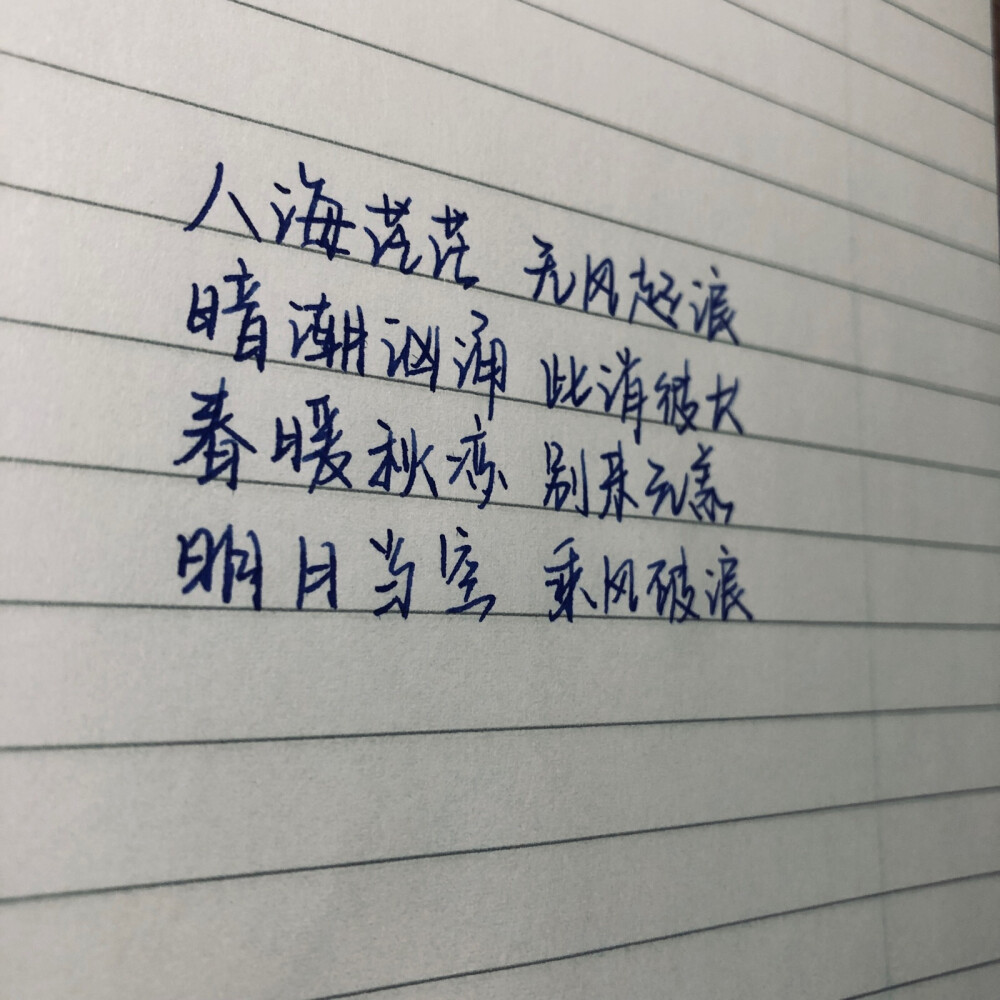 人海茫茫 无风起浪
暗潮汹涌 此消彼长
春暖秋凉 别来无恙
明月当空 乘风破浪